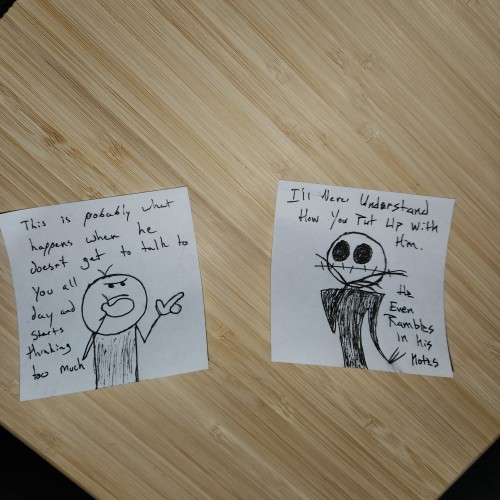 This is probably what
happens when he
doesnt get to talk to
you all
day and
starts
thinking
too much
I'll Never Understand
How You Put Up With
Him.
He
Even
Rambles
In His
Notes